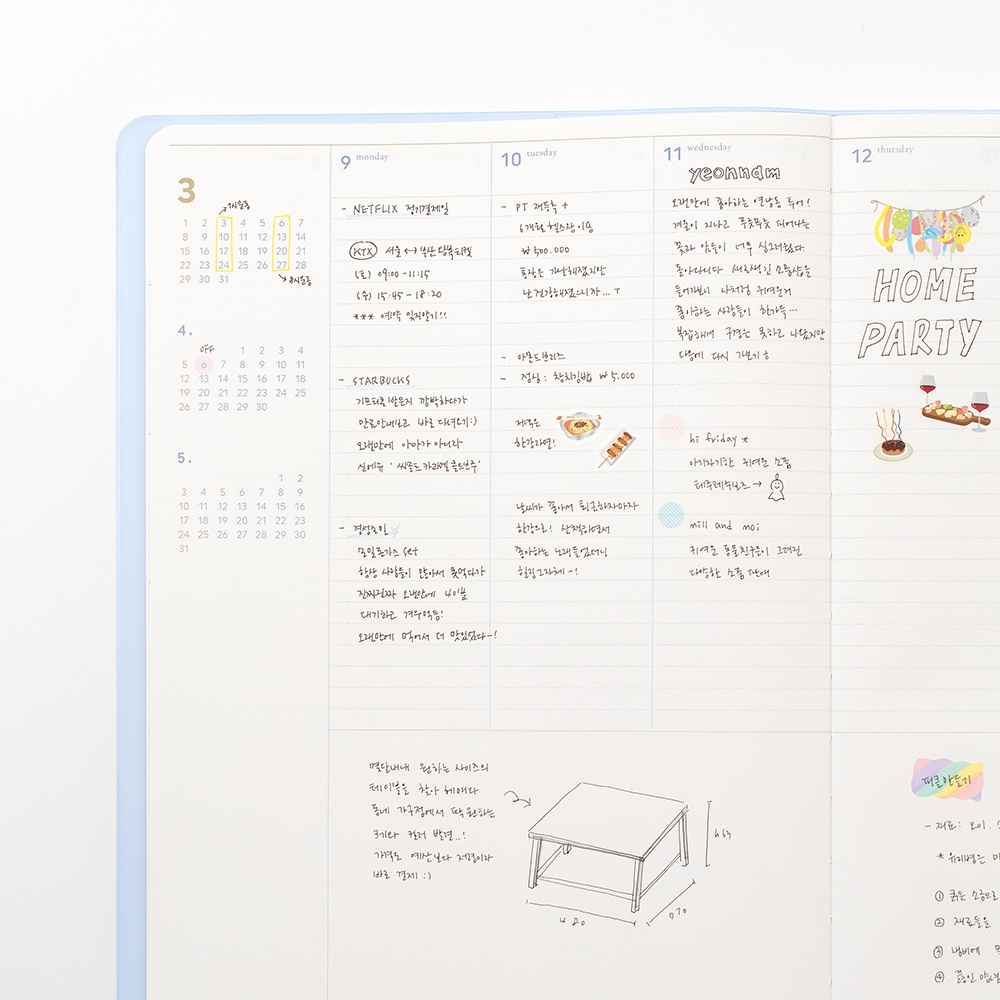 3
7시운동
1 2 3 4 5 6 7
8 9 10 11 12 13 14
15 16 17 18 19 20 21
22 23 24 25 26 27 28
29 30 31
8시운동
4.
OFF
1 2 3 4
5 6 7 8 9 10 11
12 13 14 15 16 17 18
19 20 21 22 23 24 25
26 27 28 29 30
5.
1 2
3 4 5 6 7 8 9
10 11 12 13 14 15 16
17 18 19 20 21 22 23
24 25 26 27 28 29 30
31
9 monday
- NETFLIX 정기결제일
KTX 서울 ↔ 부산 왕복티켓
(토) 09:00 - 11:15
15:45 - 18:20
*** 예약 잊지말기!!
- STARBUCKS
기프티콘받은지 깜박하다가
만료안내보고 바로 다녀오기:)
오랜만에 아아가 아니라
- 경성호인
모밀돈가스 set
항상 사람들이 많아서 못먹다가
진짜진짜 오랜만에 40분
대기하고 겨우먹음!
오랜만에 먹어서 더 맛있었다-!
10 tuesday
- PT 재등록 +
6개월 헬스장이용
₩500.000
통장은 가난해졌지만
난 건강해졌으니까... T
- 아몬드브리즈
- 점심 : 참치김밥 ₩5,000
저녁은
한강라면!
날씨가 좋아서 퇴근하자마자
한강으로! 산책하면서
좋아하는 노래들었더니
힐링그자체-!
11 wednesday
yeonnam
오랜만에 좋아하는 연남동 투어!
겨울이 지나고 푸릇푸릇 피어나는
꽃과 잎들이 너무 싱그러웠다.
돌아다니다 새로생긴 소품샵을
들어가보니 나처럼 귀여운거
좋아하는 사람들이 한가득...
복잡해서 구경은 못하고 나왔지만
다음에 다시 가보기
hi friday *
아기자기한 귀여운 소품
테루테루보즈 →
mill and moi
귀여운 동물친구들이 그려진
다양한 소품 판매
12 thursday
HOME
PARTY
몇달내내 원하는 사이즈의
테이블을 찾아 헤매다
동네 가구점에서 딱 원하는
크기와 컬러 발견..!
가격도 예산보다 저렴이라
바로 결제 :)
h 65
W 80
D 70
피클만들기
- 재료: 오이.
* 유리병은
① 굵은 소금으로
② 재료들을
③ 냄비에
④ 끓인